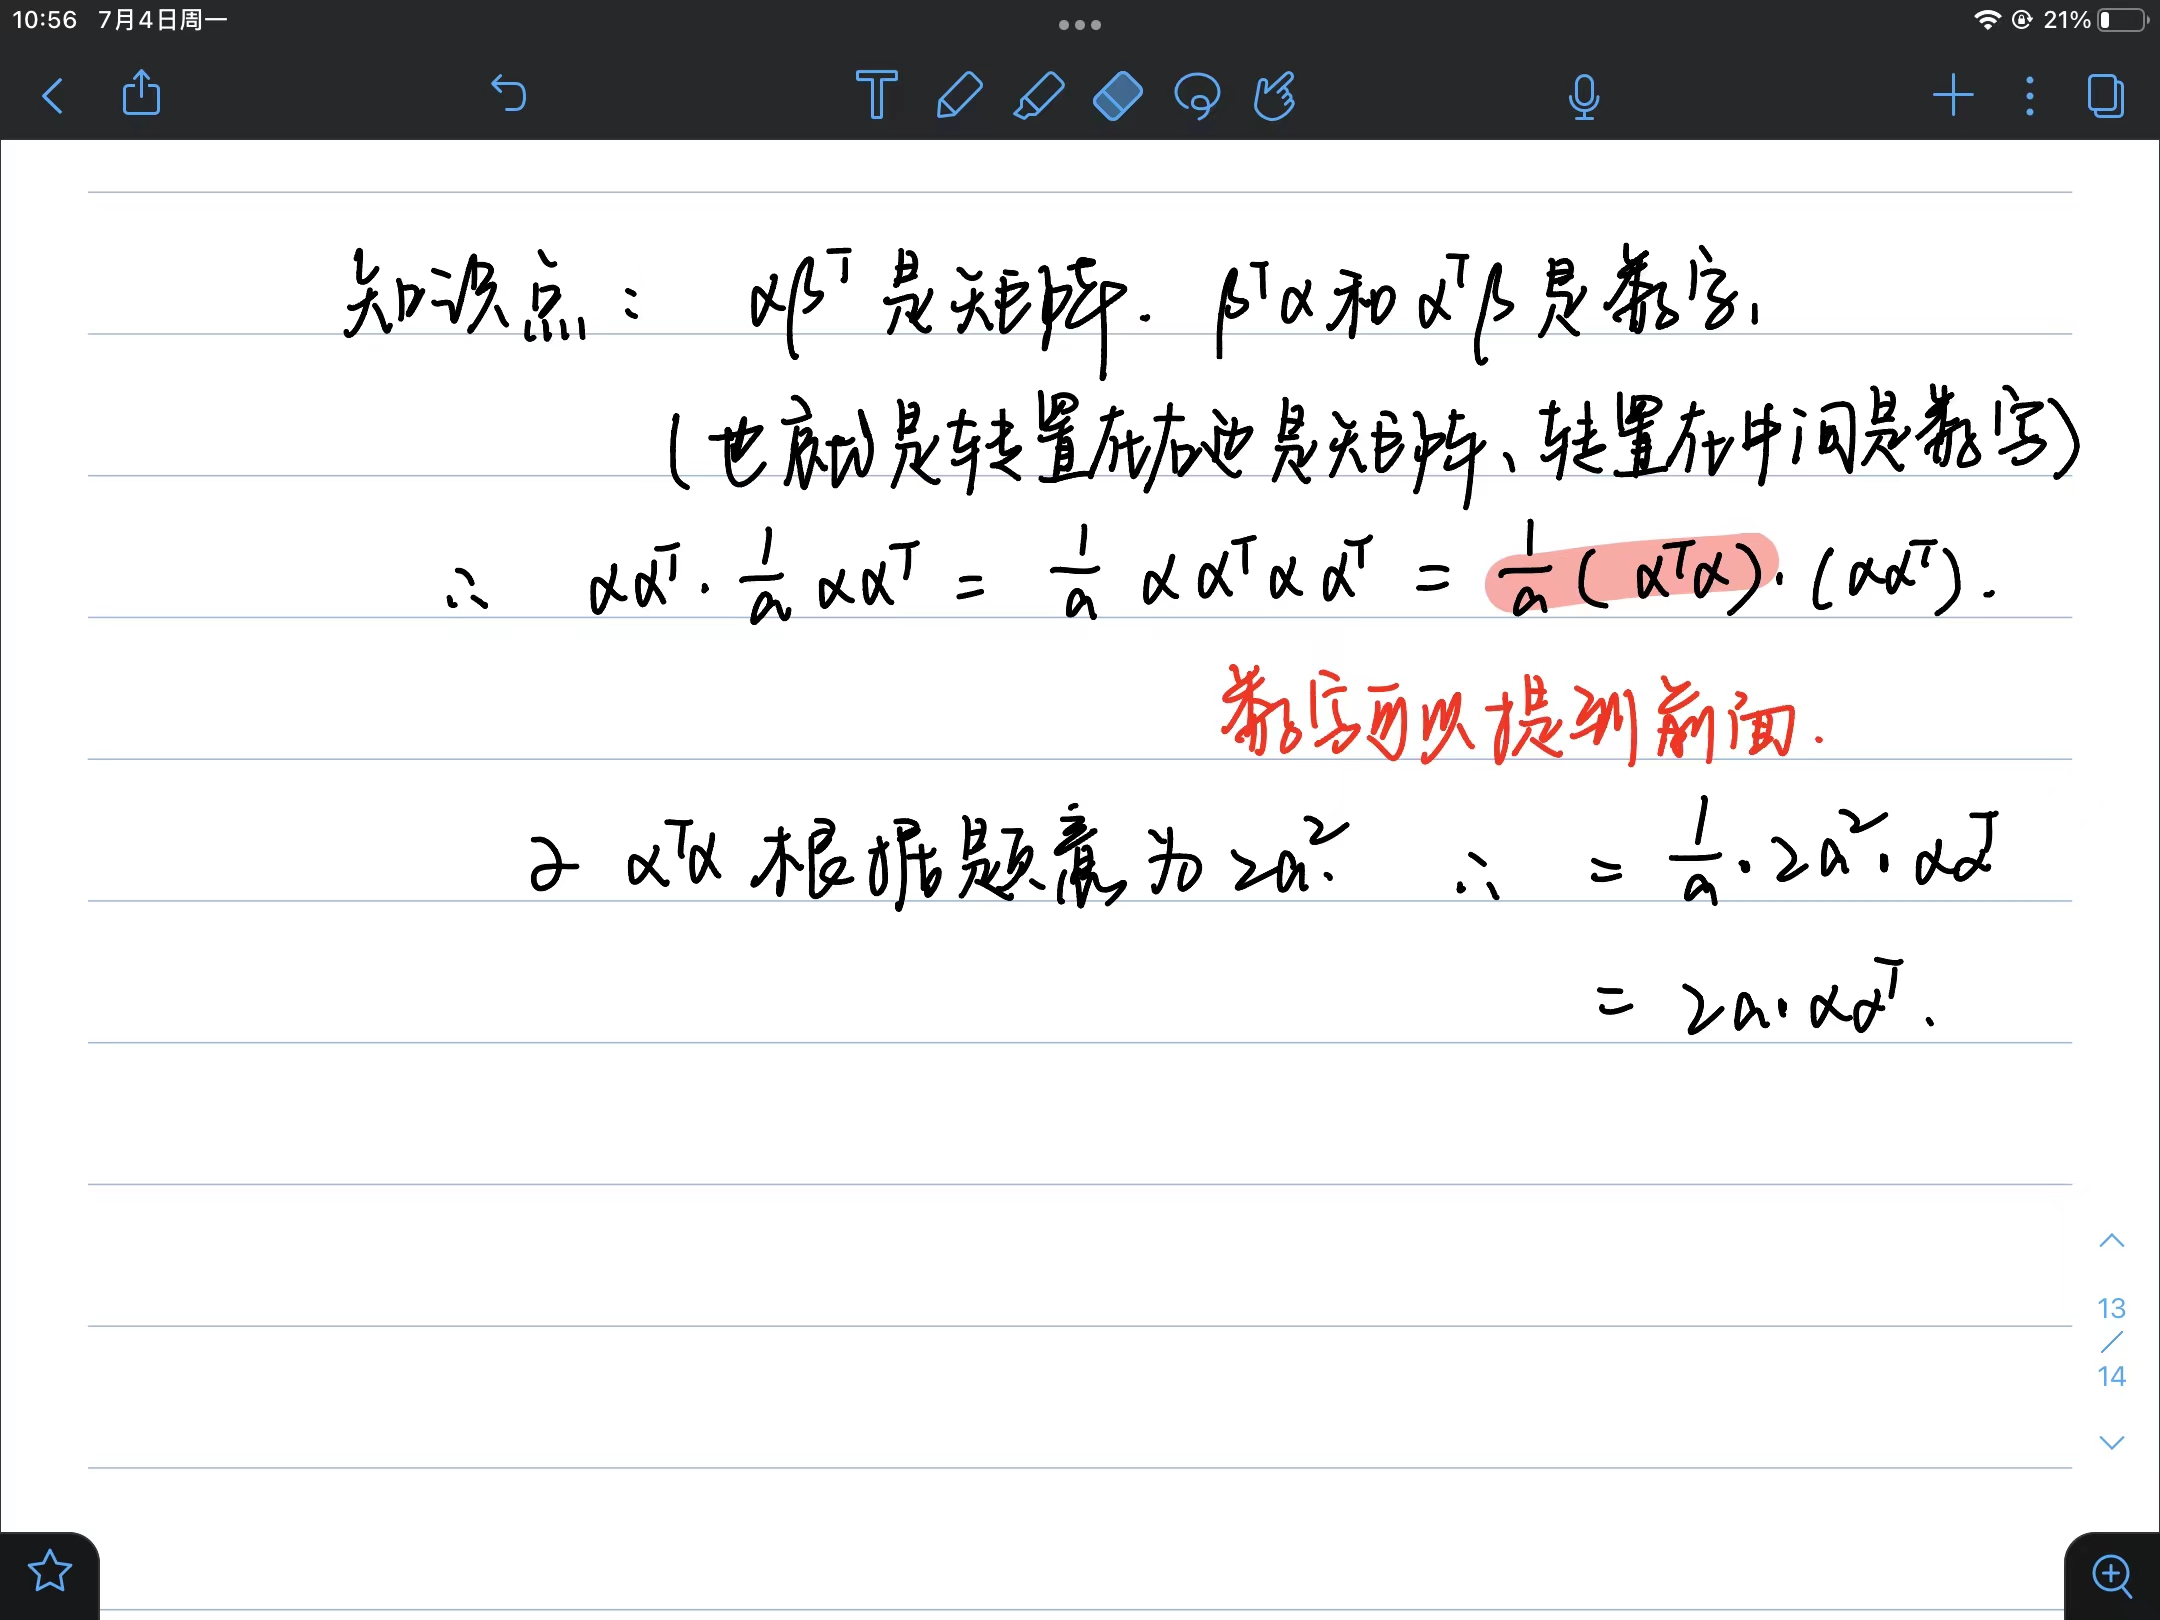 10:56 7月4日周一
21%
知识点： αβᵀ 是矩阵. βᵀα 和 αᵀβ 是数字,
(也就是转置在右边是矩阵、转置在中间是数字)
∴ ααᵀ · 1/a ααᵀ = 1/a α αᵀ α αᵀ = 1/a ( αᵀα) · (ααᵀ).
数字可以提到前面.
αᵀα 根据题意为 2a². ∴ = 1/a · 2a² · ααᵀ
= 2a · ααᵀ.
13
/
14